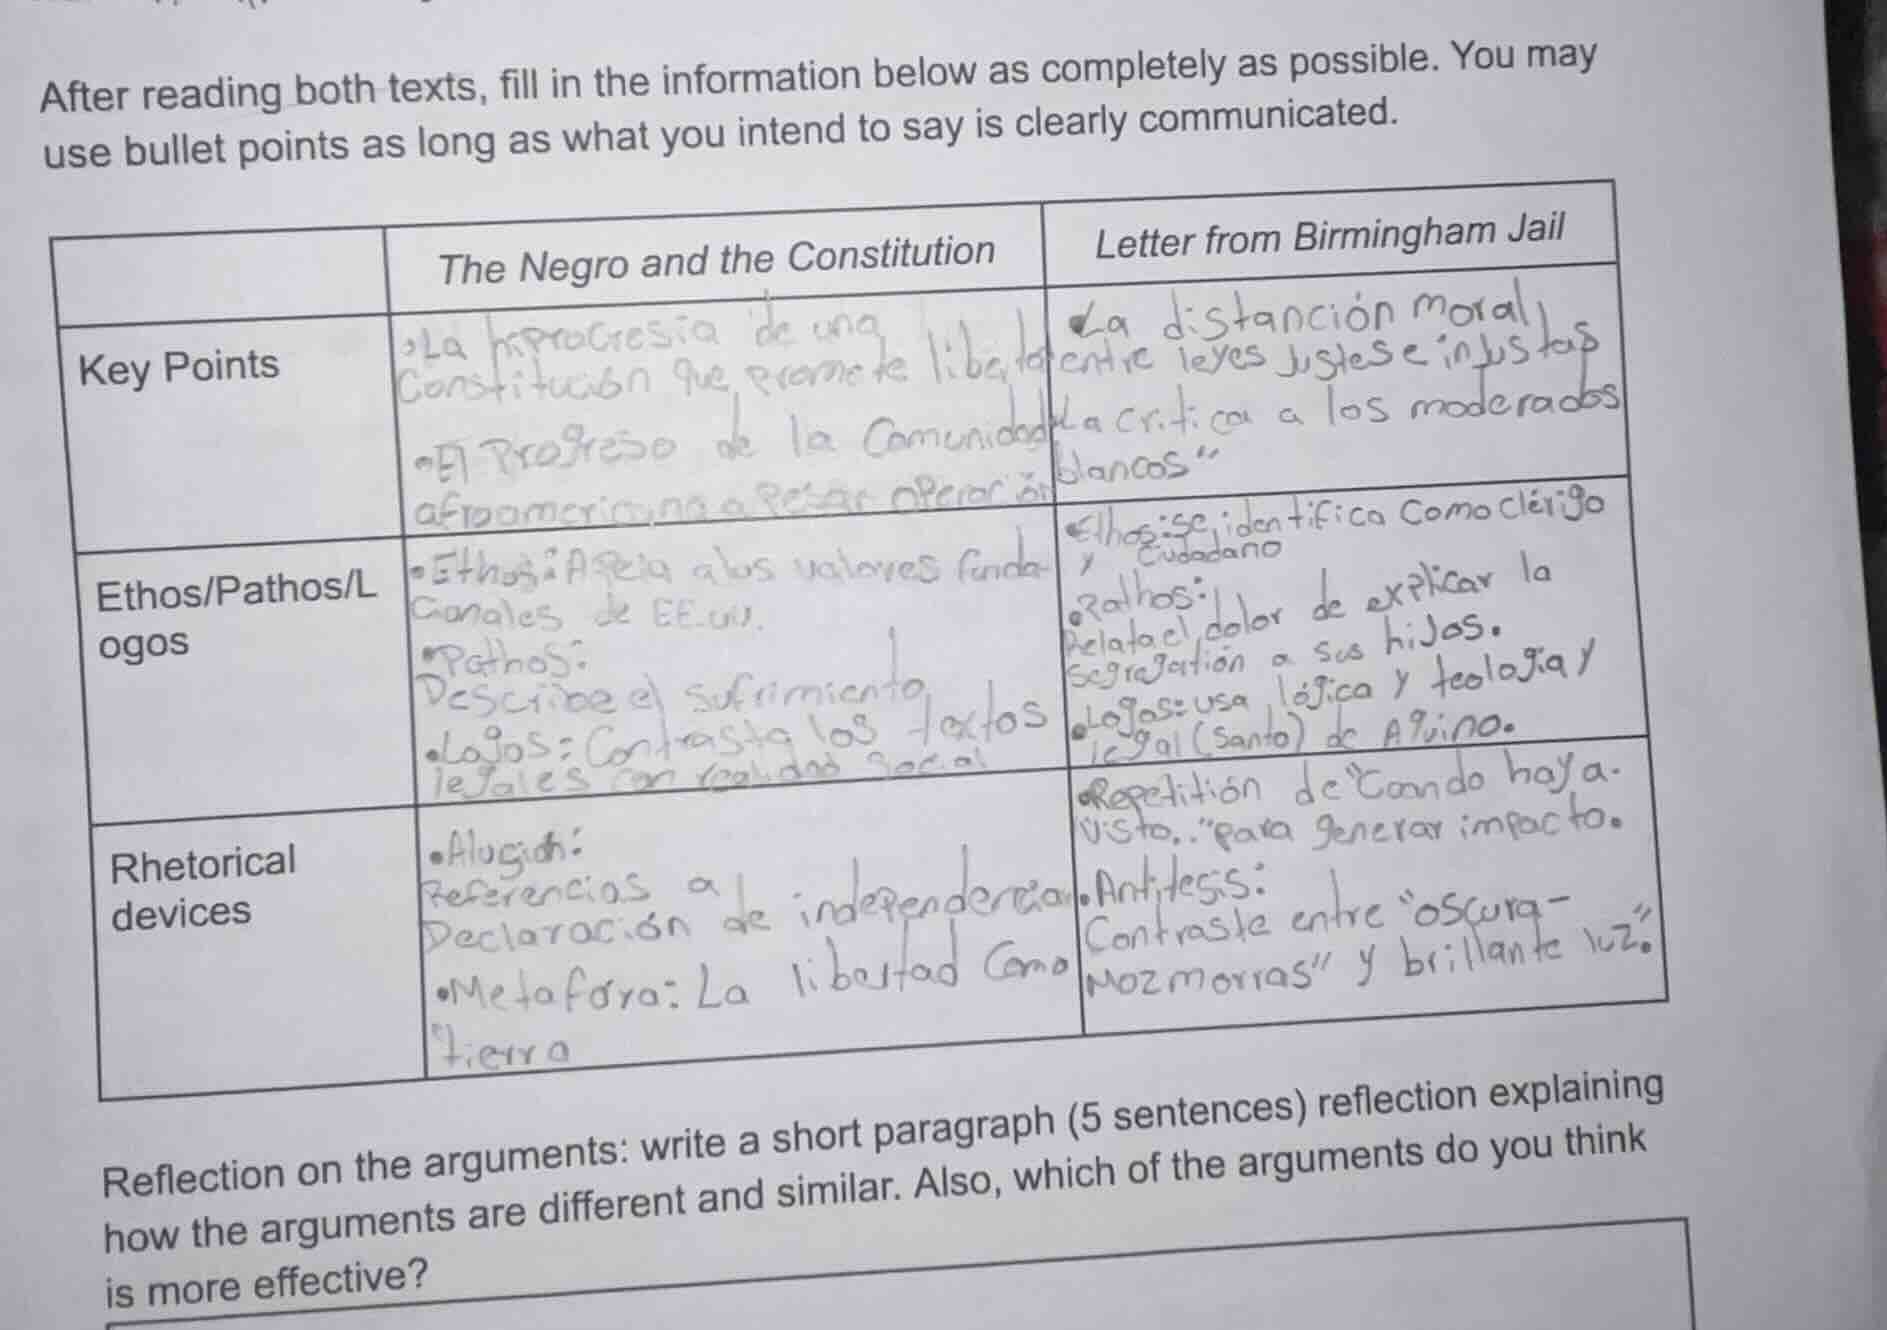 After reading both texts, fill in the information below as completely as possible. You may
use bullet points as long as what you intend to say is clearly communicated.
The Negro and the Constitution
Letter from Birmingham Jail
Key Points
•La hiprocresia de una
Constitución que promete libertad
•El Progreso de la Comunidad
afroamericana a Pesar operación
•La distanción moral
entre leyes Justes e injustas
•La critica a los moderados
blancos"
Ethos/Pathos/L
ogos
•Ethos: Apela a los valores funda-
Cionales de EE.UU.
•Pathos:
Describe el sufrimiento
•Logos: Contrasta los textos
legales con realidad Social
•Ethos: Se identifica Como clérigo
y Ciudadano
•Pathos:
Relata el dolor de explicar la
Segregatión a sus hiJos.
•Logos: usa lógica y teologia y
legal (Santo) de Aquino.
Rhetorical
devices
•Alusión:
Referencias a
Declaración de independencia
•Metafora: La libertad Como
tierra
•Repetitión de "Coando haya.
visto.." para generar impacto.
•Antitesis:
Contraste entre "oscura-
Mozmorras" y brillante luz".
Reflection on the arguments: write a short paragraph (5 sentences) reflection explaining
how the arguments are different and similar. Also, which of the arguments do you think
is more effective?